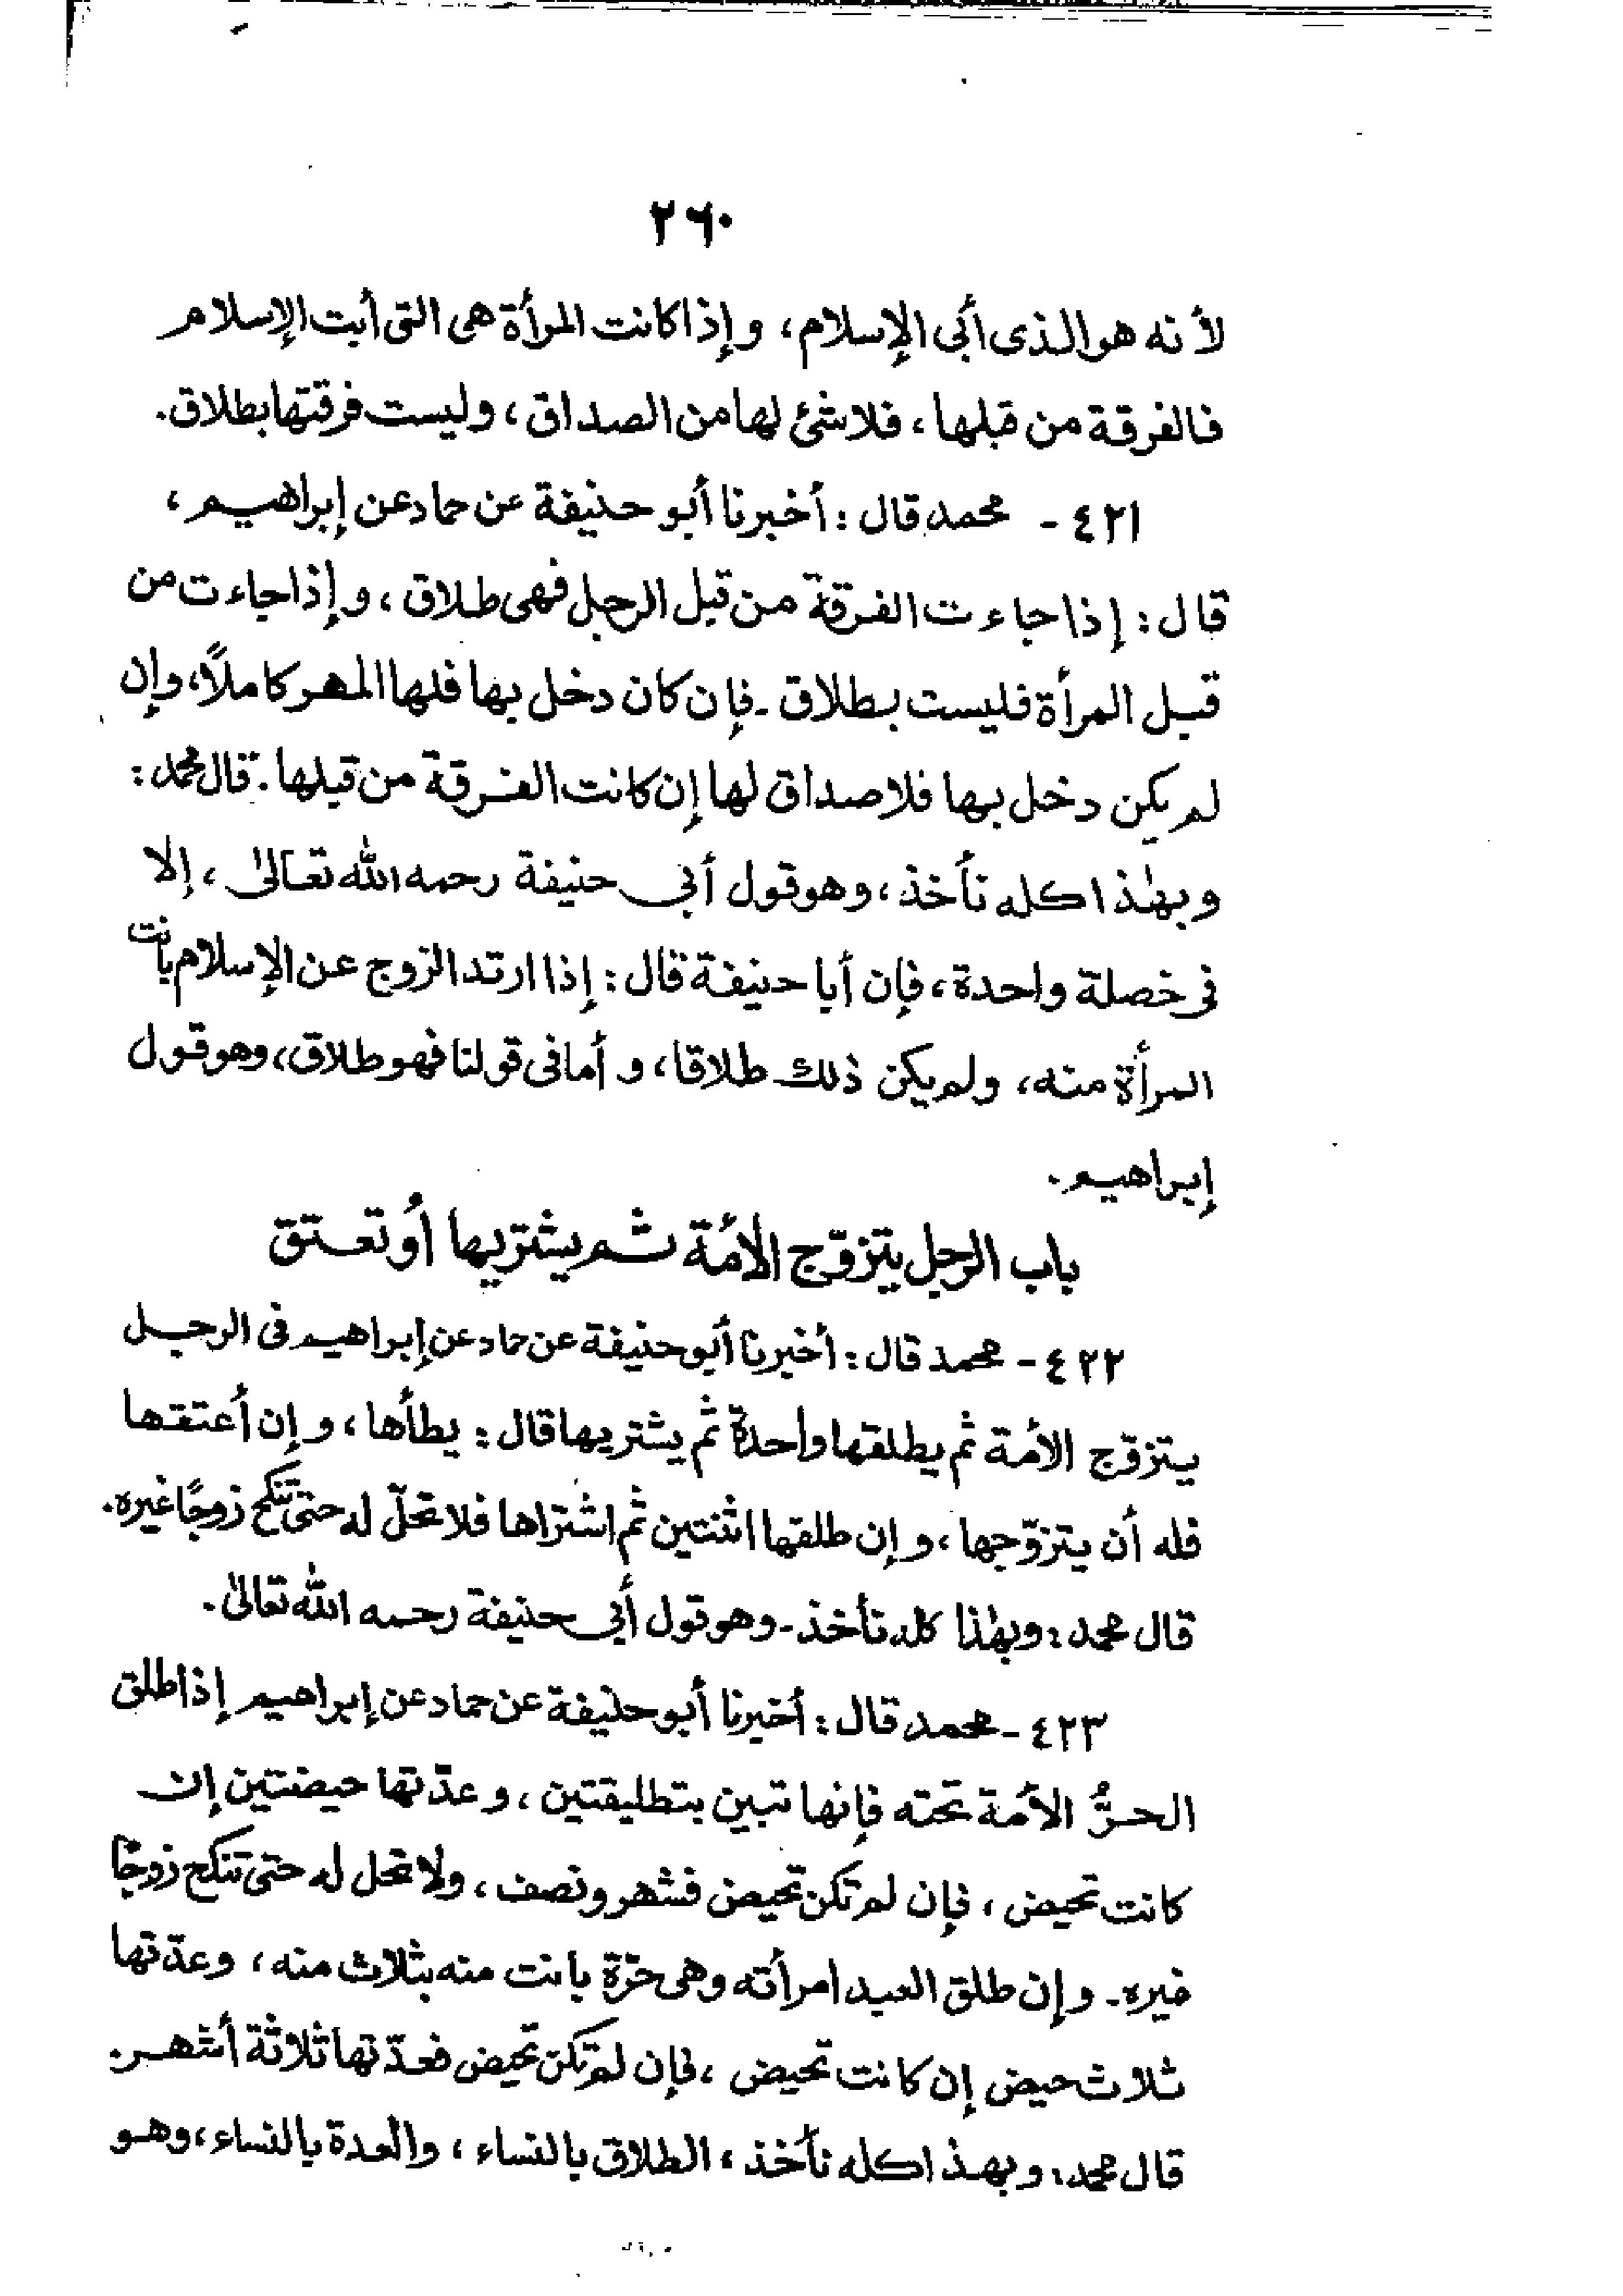 ٢٦٠
لأنه هو الذى أبى الإسلام، وإذا كانت المرأة هى التى أبت الإسلام
فالفرقة من قبلها، فلا شئ لها من الصداق، وليست فرقتها بطلاق.
٤٢١ - محمد قال: أخبرنا أبو حنيفة عن حماد عن إبراهيم،
قال: إذا جاءت الفرقة من قبل الرجل فهى طلاق، وإذا جاءت من
قبل المرأة فليست بطلاق - فإن كان دخل بها فلها المهر كاملاً، وإن
لم يكن دخل بها فلا صداق لها إن كانت الفرقة من قبلها. قال محمد:
وبهٰذا كله نأخذ، وهو قول أبى حنيفة رحمه الله تعالىٰ، إلا
فى خصلة واحدة، فإن أبا حنيفة قال: إذا ارتد الزوج عن الإسلام بانت
المرأة منه، ولم يكن ذلك طلاقا، و أما فى قولنا فهو طلاق، وهو قول
إبراهيم.
باب الرجل يتزوّج الأمة ثم يشتريها أو تعتق
٤٢٢ - محمد قال: أخبرنا أبو حنيفة عن حماد عن إبراهيم فى الرجل
يتزوّج الأمة ثم يطلقها واحدة ثم يشتريها قال: يطأها، وإن أعتقها
فله أن يتزوّجها، وإن طلقها اثنتين ثم اشتراها فلا تحلّ له حتى تنكح زوجًا غيره.
قال محمد: وبهٰذا كله نأخذ - وهو قول أبى حنيفة رحمه الله تعالىٰ.
٤٢٣ - محمد قال: أخبرنا أبو حنيفة عن حماد عن إبراهيم إذا طلق
الحرُّ الأمة تحته فإنها تبين بتطليقتين، وعدّتها حيضتين إن
كانت تحيض، فإن لم تكن تحيض فشهر ونصف، ولا تحل له حتى تنكح زوجًا
غيره - وإن طلق العبد امرأته وهى حرّة بانت منه بثلاث منه، وعدّتها
ثلاث حيض إن كانت تحيض، فإن لم تكن تحيض فعدّتها ثلاثة أشهر.
قال محمد: وبهذا كله نأخذ، الطلاق بالنساء، والعدة بالنساء، وهو